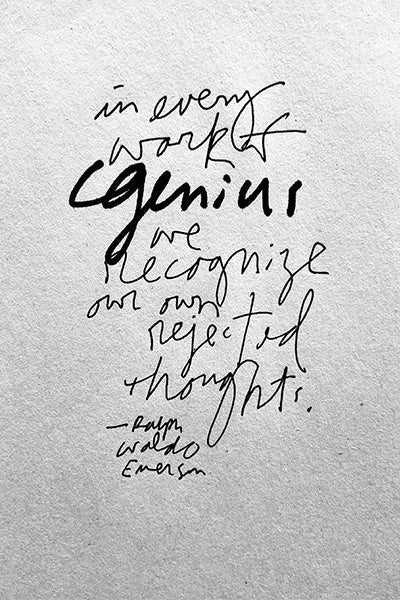 in every
work of
genius
we
recognize
our own
rejected
thoughts.
—Ralph
Waldo
Emerson